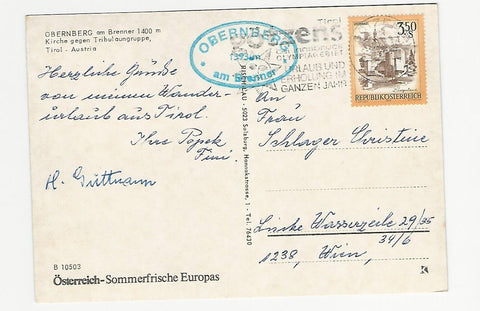 OBERNBERG am Brenner 1400 m
Kirche gegen Tribulaungruppe,
Tirol - Austria
Herzliche Grüße
von meinem Wander-
urlaub aus Tirol.
Ihre
Tini.
H. Guttmann
B 10503
Österreich-Sommerfrische Europas
5023 Salzburg, - Tel. 76430
OBERNBERG
1393 m
am Brenner
Tirol
OLYMPIAGEBIET
URLAUB UND
ERHOLUNG IM
GANZEN JAHR
3.50
REPUBLIK ÖSTERREICH
An
Frau
Schlager Christine
Linke Wasserzeile 29/35
34/6
1238, Wien,